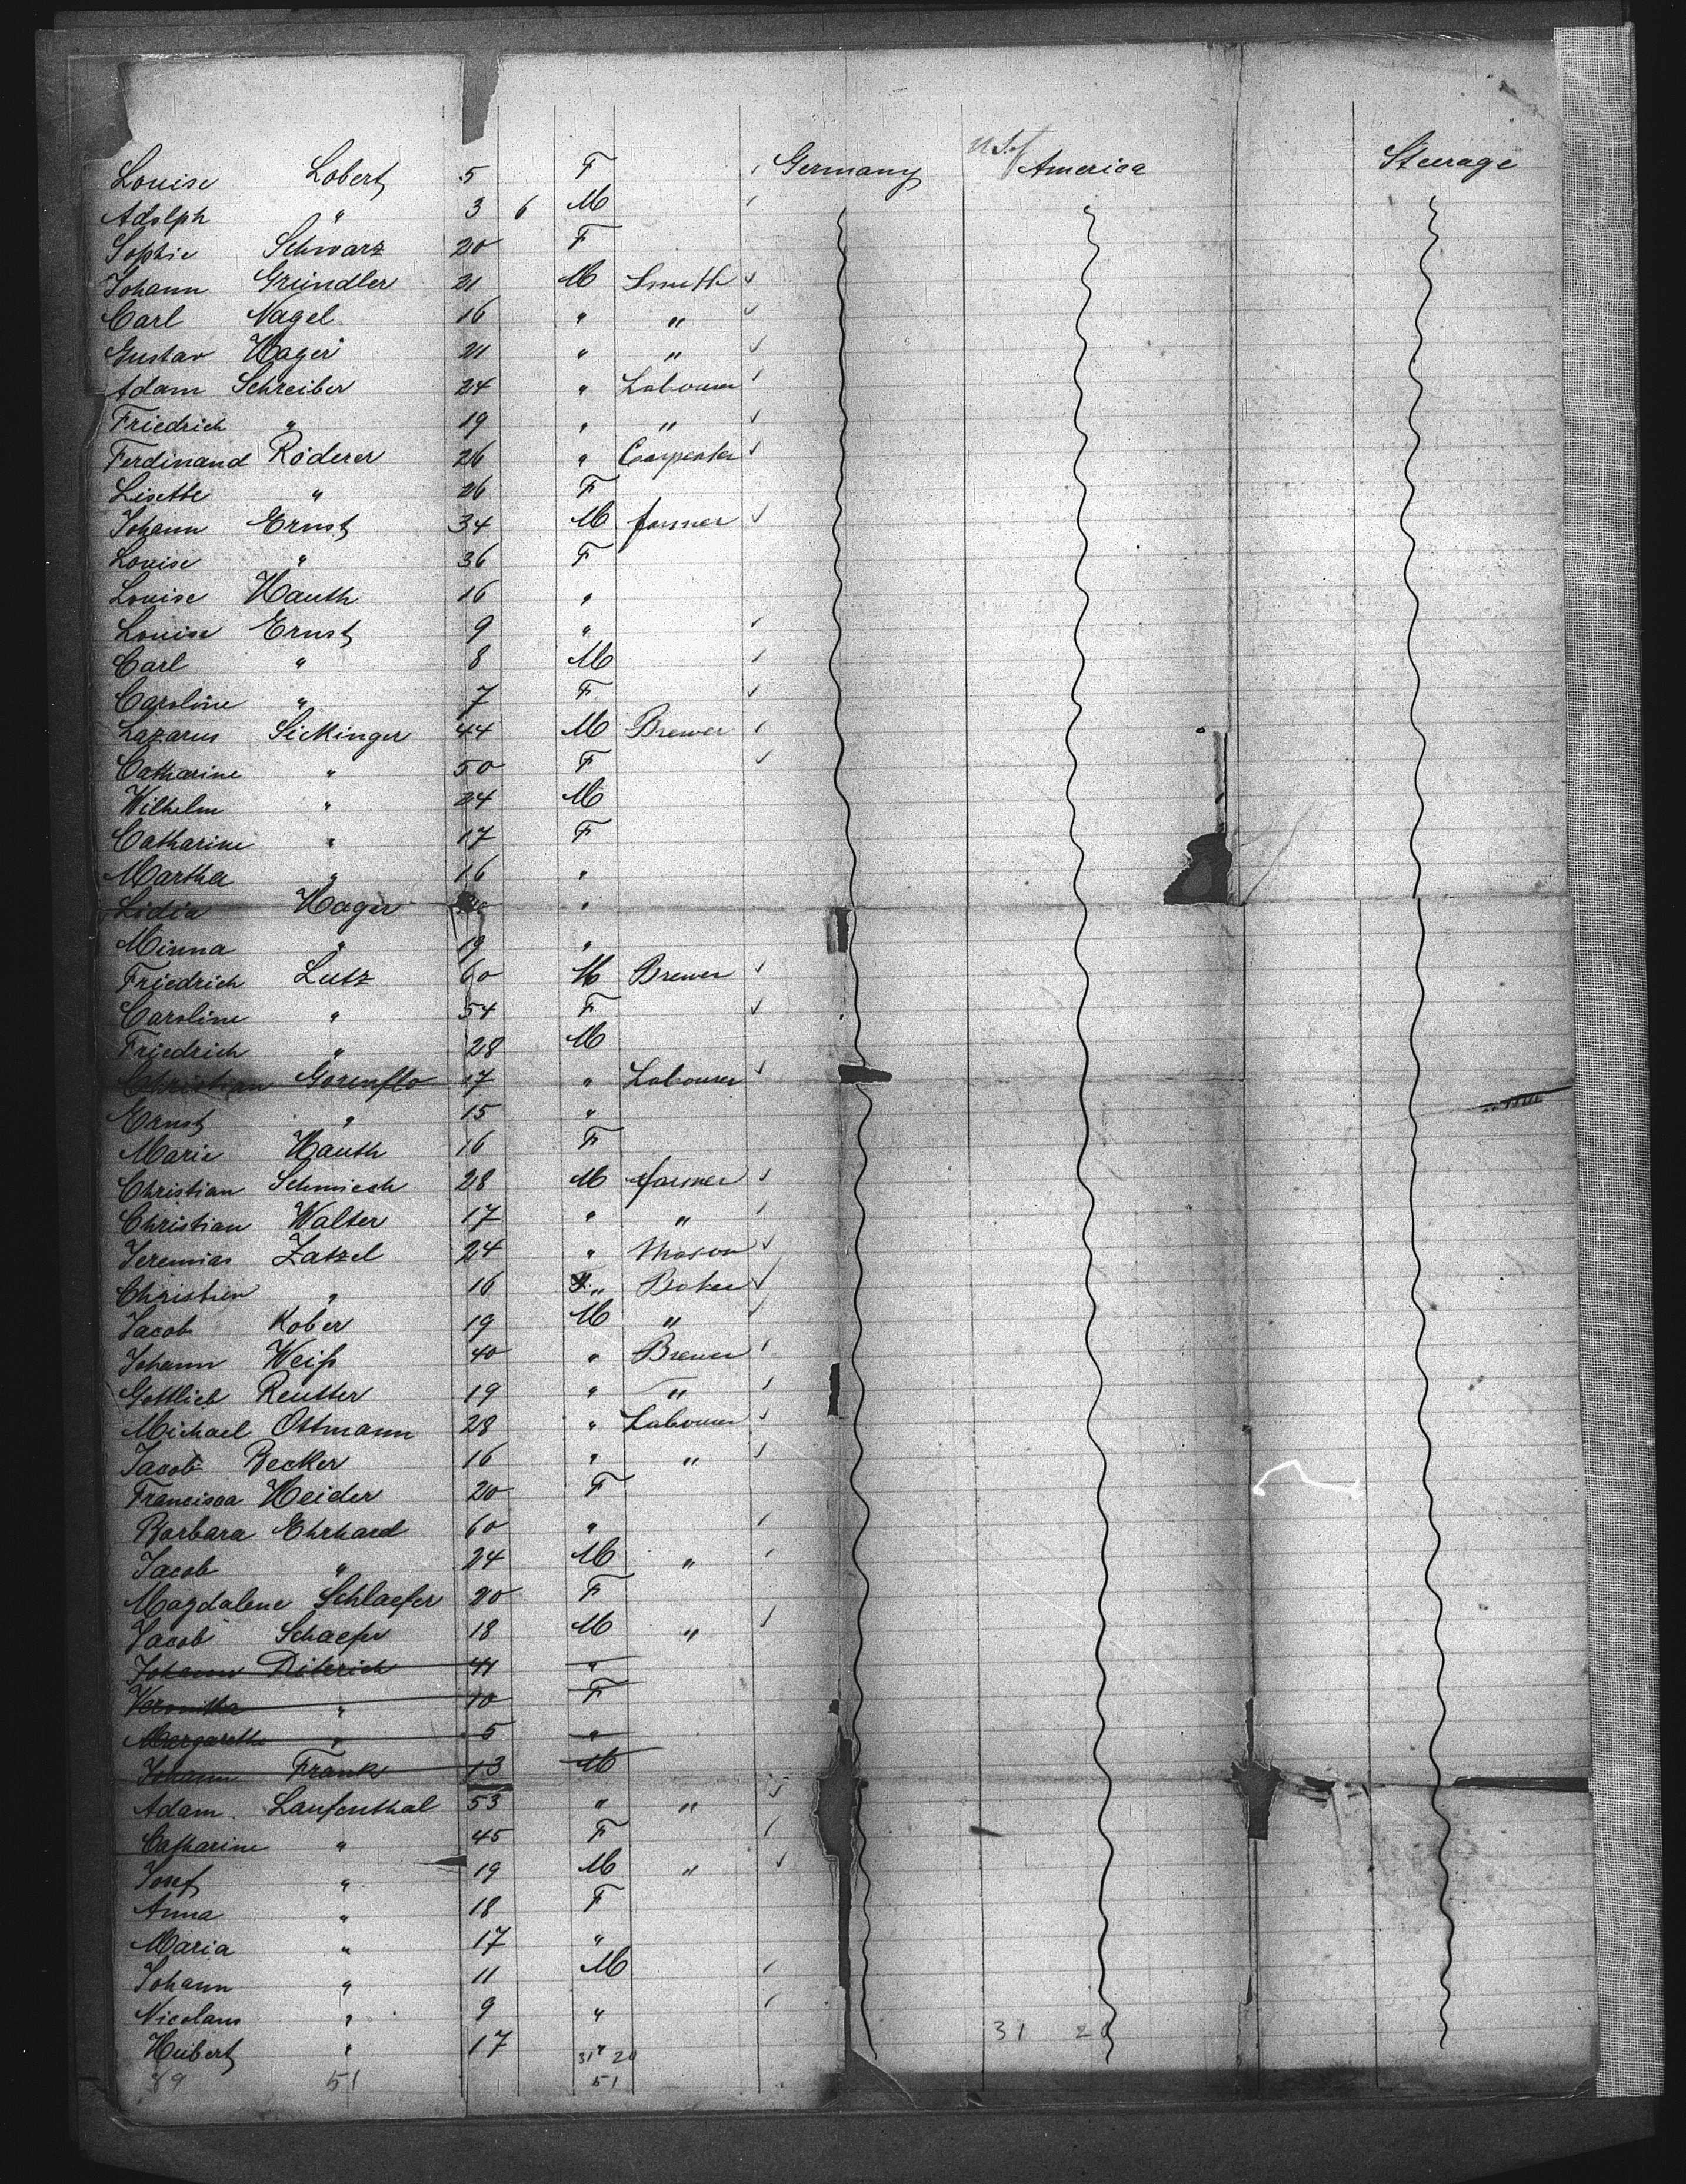 Louise Lobert 5 F Germany U.S. of America Steerage
Adolph " 3 6 M
Sophie Schwarz 20 F
Johann Gründler 21 M Smith
Carl Nagel 16 " "
Gustav Hager 21 " "
Adam Schreiber 24 " Labourer
Friedrich " 19 " "
Ferdinand Röderer 26 " Carpenter
Lisette " 26 F
Johann Ernst 34 M farmer
Louise " 36 F
Louise Hauth 16 "
Louise Ernst 9 "
Carl " 8 M
Caroline " 7 F
Lazarus Sickinger 44 M Brewer
Catharine " 50 F
Wilhelm " 24 M
Catharine " 17 F
Martha " 16 "
Lidia Hager "
Minna " 19 "
Friedrich Lutz 60 M Brewer
Caroline " 54 F
Friedrich " 28 M
Christian Gorenflo 17 " Labourer
Ernst " 15 "
Marie Hauth 16 F
Christian Schmiech 28 M farmer
Christian Walter 17 " "
Jeremias Zatzel 24 " Mason
Christian " 16 " Baker
Jacob Kober 19 M "
Johann Weiß 40 " Brewer
Gottlieb Reutter 19 " "
Michael Ottmann 28 " Labourer
Jacob Becker 16 " "
Francisca Heider 20 F
Barbara Ehrhard 60 "
Jacob " 24 M "
Magdalene Schlaefer 20 F
Jacob Schaefer 18 M "
Johann Diterich 41 "
" 10 F
Margarethe " 5 "
Johann Frank 13 M
Adam Laufenthal 53 " "
Catharine " 45 F
Josef " 19 M "
Anna " 18 F
Maria " 17 "
Johann " 11 M
Nicolaus " 9 "
31 20
Hubert " 17 "
31 20
89 51 51